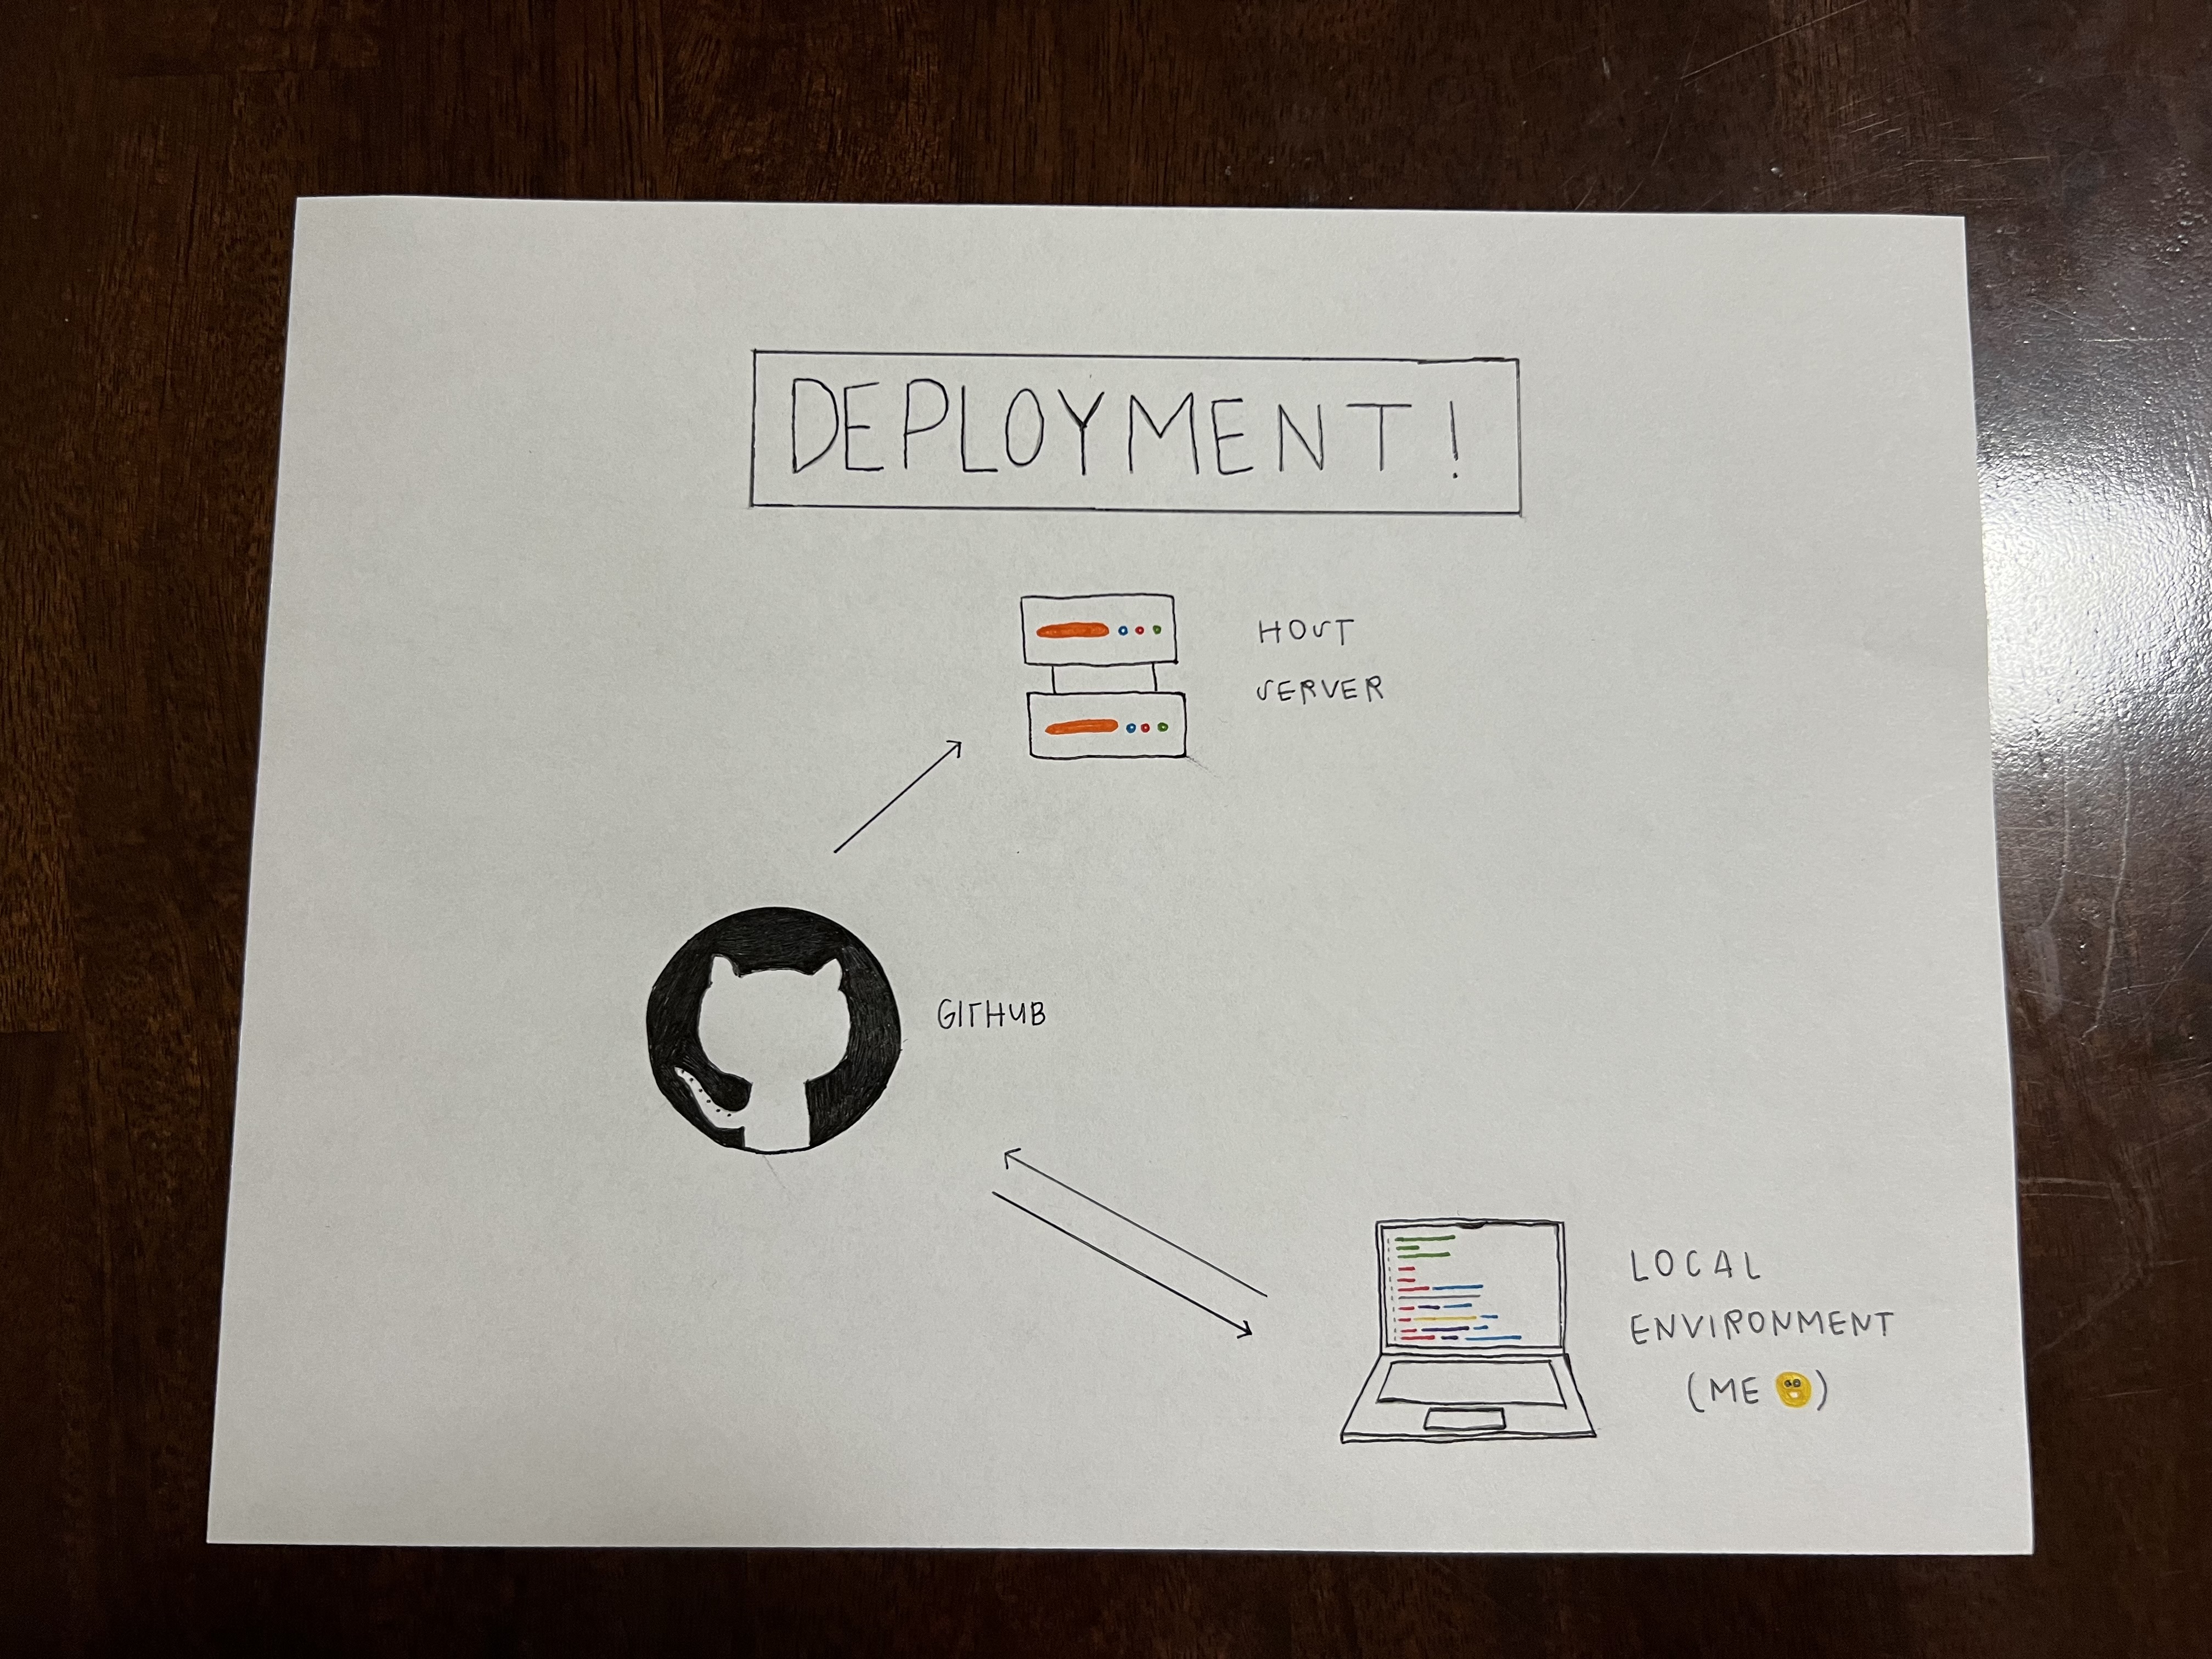 DEPLOYMENT!
HOST
SERVER
GITHUB
LOCAL
ENVIRONMENT
(ME 😀)